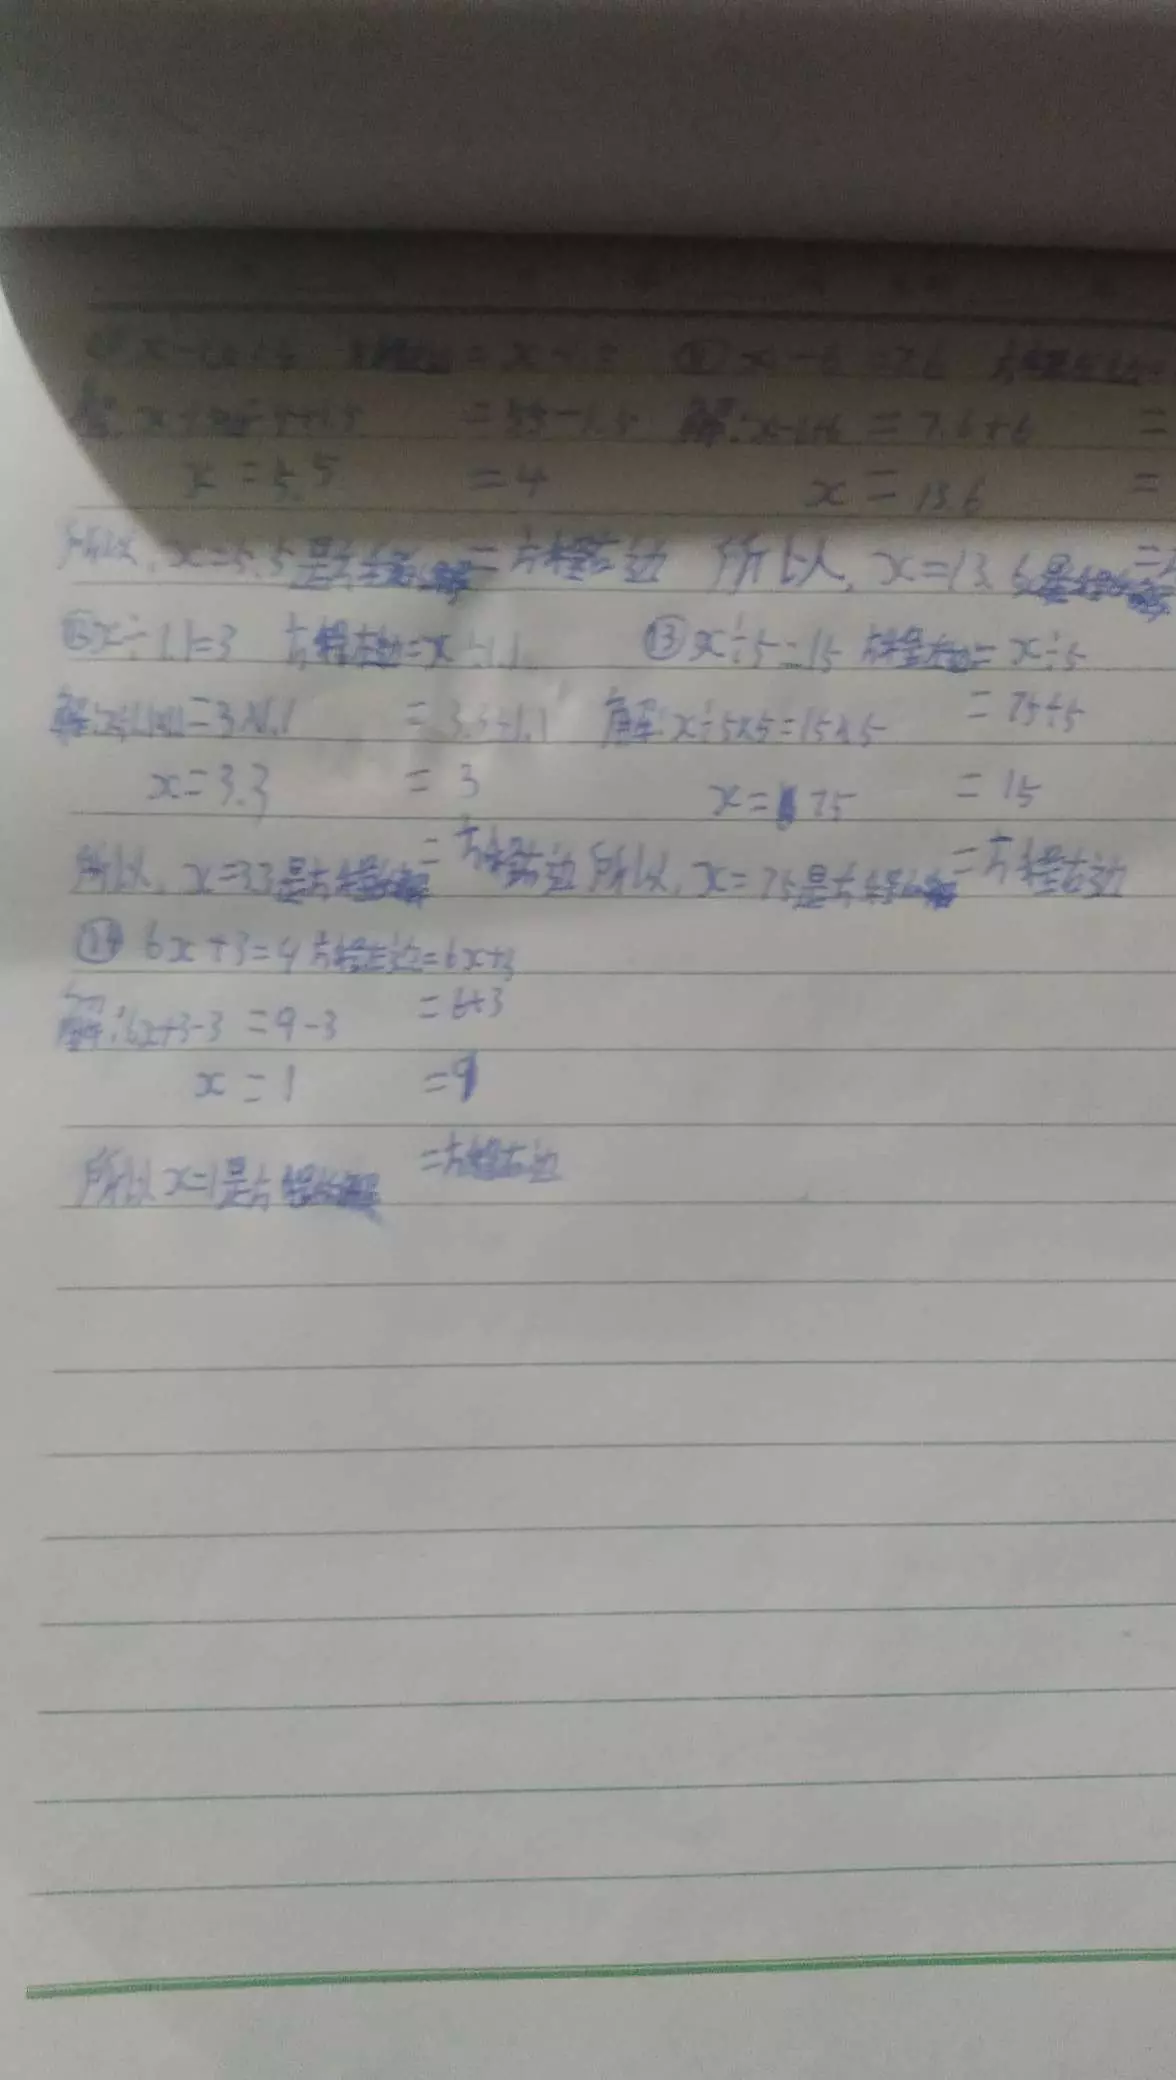 = x - 1.5 x - 6 = 7.6
= 5.5 - 1.5 解: x-6+6 = 7.6+6 =
x = 5.5 = 4 x = 13.6 =
所以, x=5.5是方程的解 = 方程右边 所以, x=13.6是方程的解 =
x÷1.1=3 方程左边=x÷1.1 ⑬x÷5=15 方程左边=x÷5
解: x÷1.1×1.1=3×1.1 = 3.3÷1.1 解: x÷5×5=15×5 = 75÷5
x=3.3 = 3 x=75 = 15
所以, x=3.3是方程的解 = 方程右边 所以, x=75是方程的解 = 方程右边
⑭ 6x+3=9 方程左边=6x+3
解: 6x+3-3 = 9-3 = 6+3
x = 1 = 9
所以 x=1是方程的解 = 方程右边